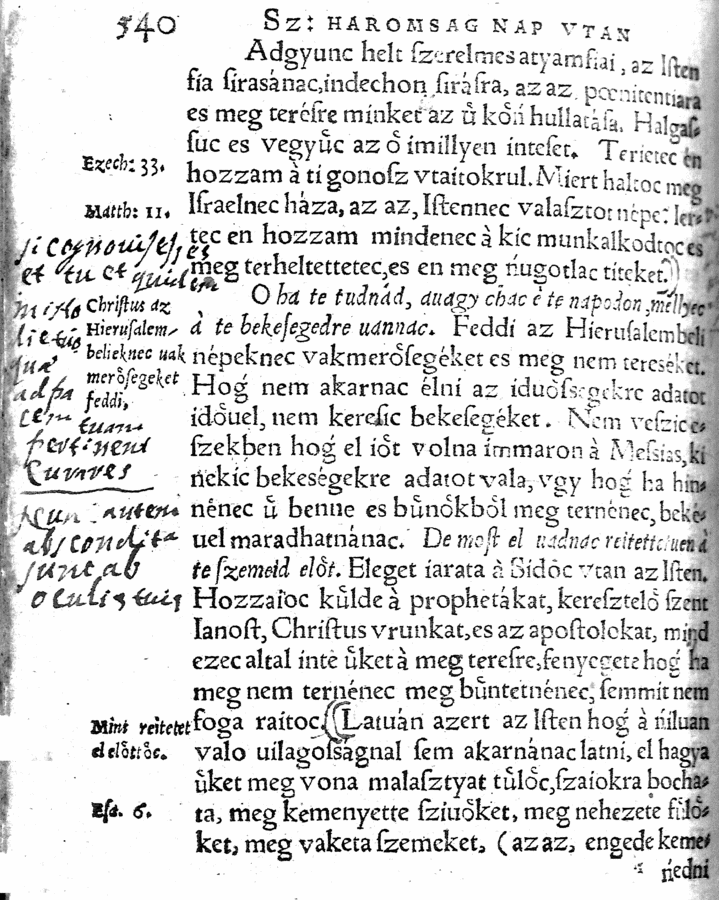 540 Sz: HAROMSAG NAP VTAN
Adgyunc helt ſzerelmes atyamfiai, az Iſten
fia ſirasánac, indechon ſiráſra, az az, pœnitentiara
es meg teréſre minket az ů kőń hullatáſa. Halgaſ⸗
ſuc es vegyůc az ő imillyen inteſet. Terietec én
hozzam à ti gonoſz vtaitokrul. Miert haltoc meg
Iſraelnec háza, az az, Iſtennec valaſztot népe: Ier⸗
tec en hozzam mindenec à kic munkalkodtoc es
meg terheltettetec, es en meg ńugotlac titeket.)
O ha te tudnád, auagy chac e te napodon, mellyec
à te bekeſegedre uannac. Feddi az Hieruſalembeli
népeknec vakmerőſegéket es meg nem tereséket.
Hoǵ nem akarnac élni az iduőſsegekre adatot
időuel, nem kereſic bekeſegéket. Nem veſzic eſ⸗
ſzekben hoǵ el iőt volna immaron à Meſsias, ki
nekic bekeségekre adatot vala, vgy hoǵ ha hin⸗
nénec ů benne es bůnőkből meg ternénec, beké⸗
uel maradhatnánac. De moſt el uadnac reitetic uen à
te ſzemeid előt. Eleget iarata à Sidőc vtan az Iſten.
Hozzaioc kůlde à prophetákat, kereſztelő ſzent
Ianoſt, Chriſtus vrunkat, es az apoſtolokat, mind
ezec altal inte ůket à meg tereſre, fenyegete hoǵ ha
meg nem ternénec meg bůntetnénec, ſemmit nem
foga raitoc. (Latuán azert az Iſten hoǵ à ńiluan
valo uilagoſságnal ſem akarnánac latni, el hagya
ůket meg vona malaſztyat tůlőc, ſzaiokra bocha⸗
ta, meg kemenyette ſziuőket, meg nehezete fůlő⸗
ket, meg vaketa ſzemeket, (az az, engede keme⸗
ńedni
Ezech: 33.
Matth: 11.
ſi cognouiſſes
et tu et quidem
Chriſtus az
Hieruſalem⸗
belieknec uak
merőſegeket
feddi,
ad pa
cem tuam
pertinent
Lucae
nunc autem
abscondita
sunt ab
oculis tuis
Mint reitetet
el előttőc.
Eſa. 6.